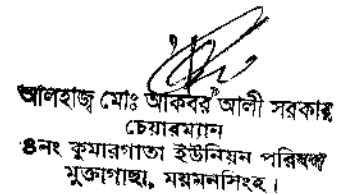 আলহাজ্ব মোঃ আকবর আলী সরকার
চেয়ারম্যান
৪নং কুমারগাতা ইউনিয়ন পরিষদ
মুক্তাগাছা, ময়মনসিংহ।